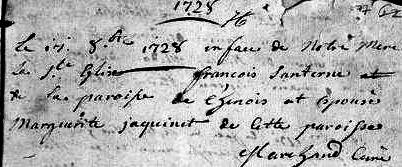 1728
Le 17. 8.bre 1728 en face de Notre Mere
la S.te Eglise francois Santerne et
de la paroisse de Chinois at Epousé
Marguerite jaquinet de cette paroisse
Marchand Curé